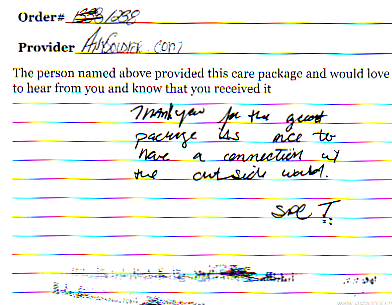 Order# 1288
Provider AnySoldier.com
The person named above provided this care package and would love
to hear from you and know that you received it
Thank you for the great
package its nice to
have a connection w/
the outside world.
SPC T.